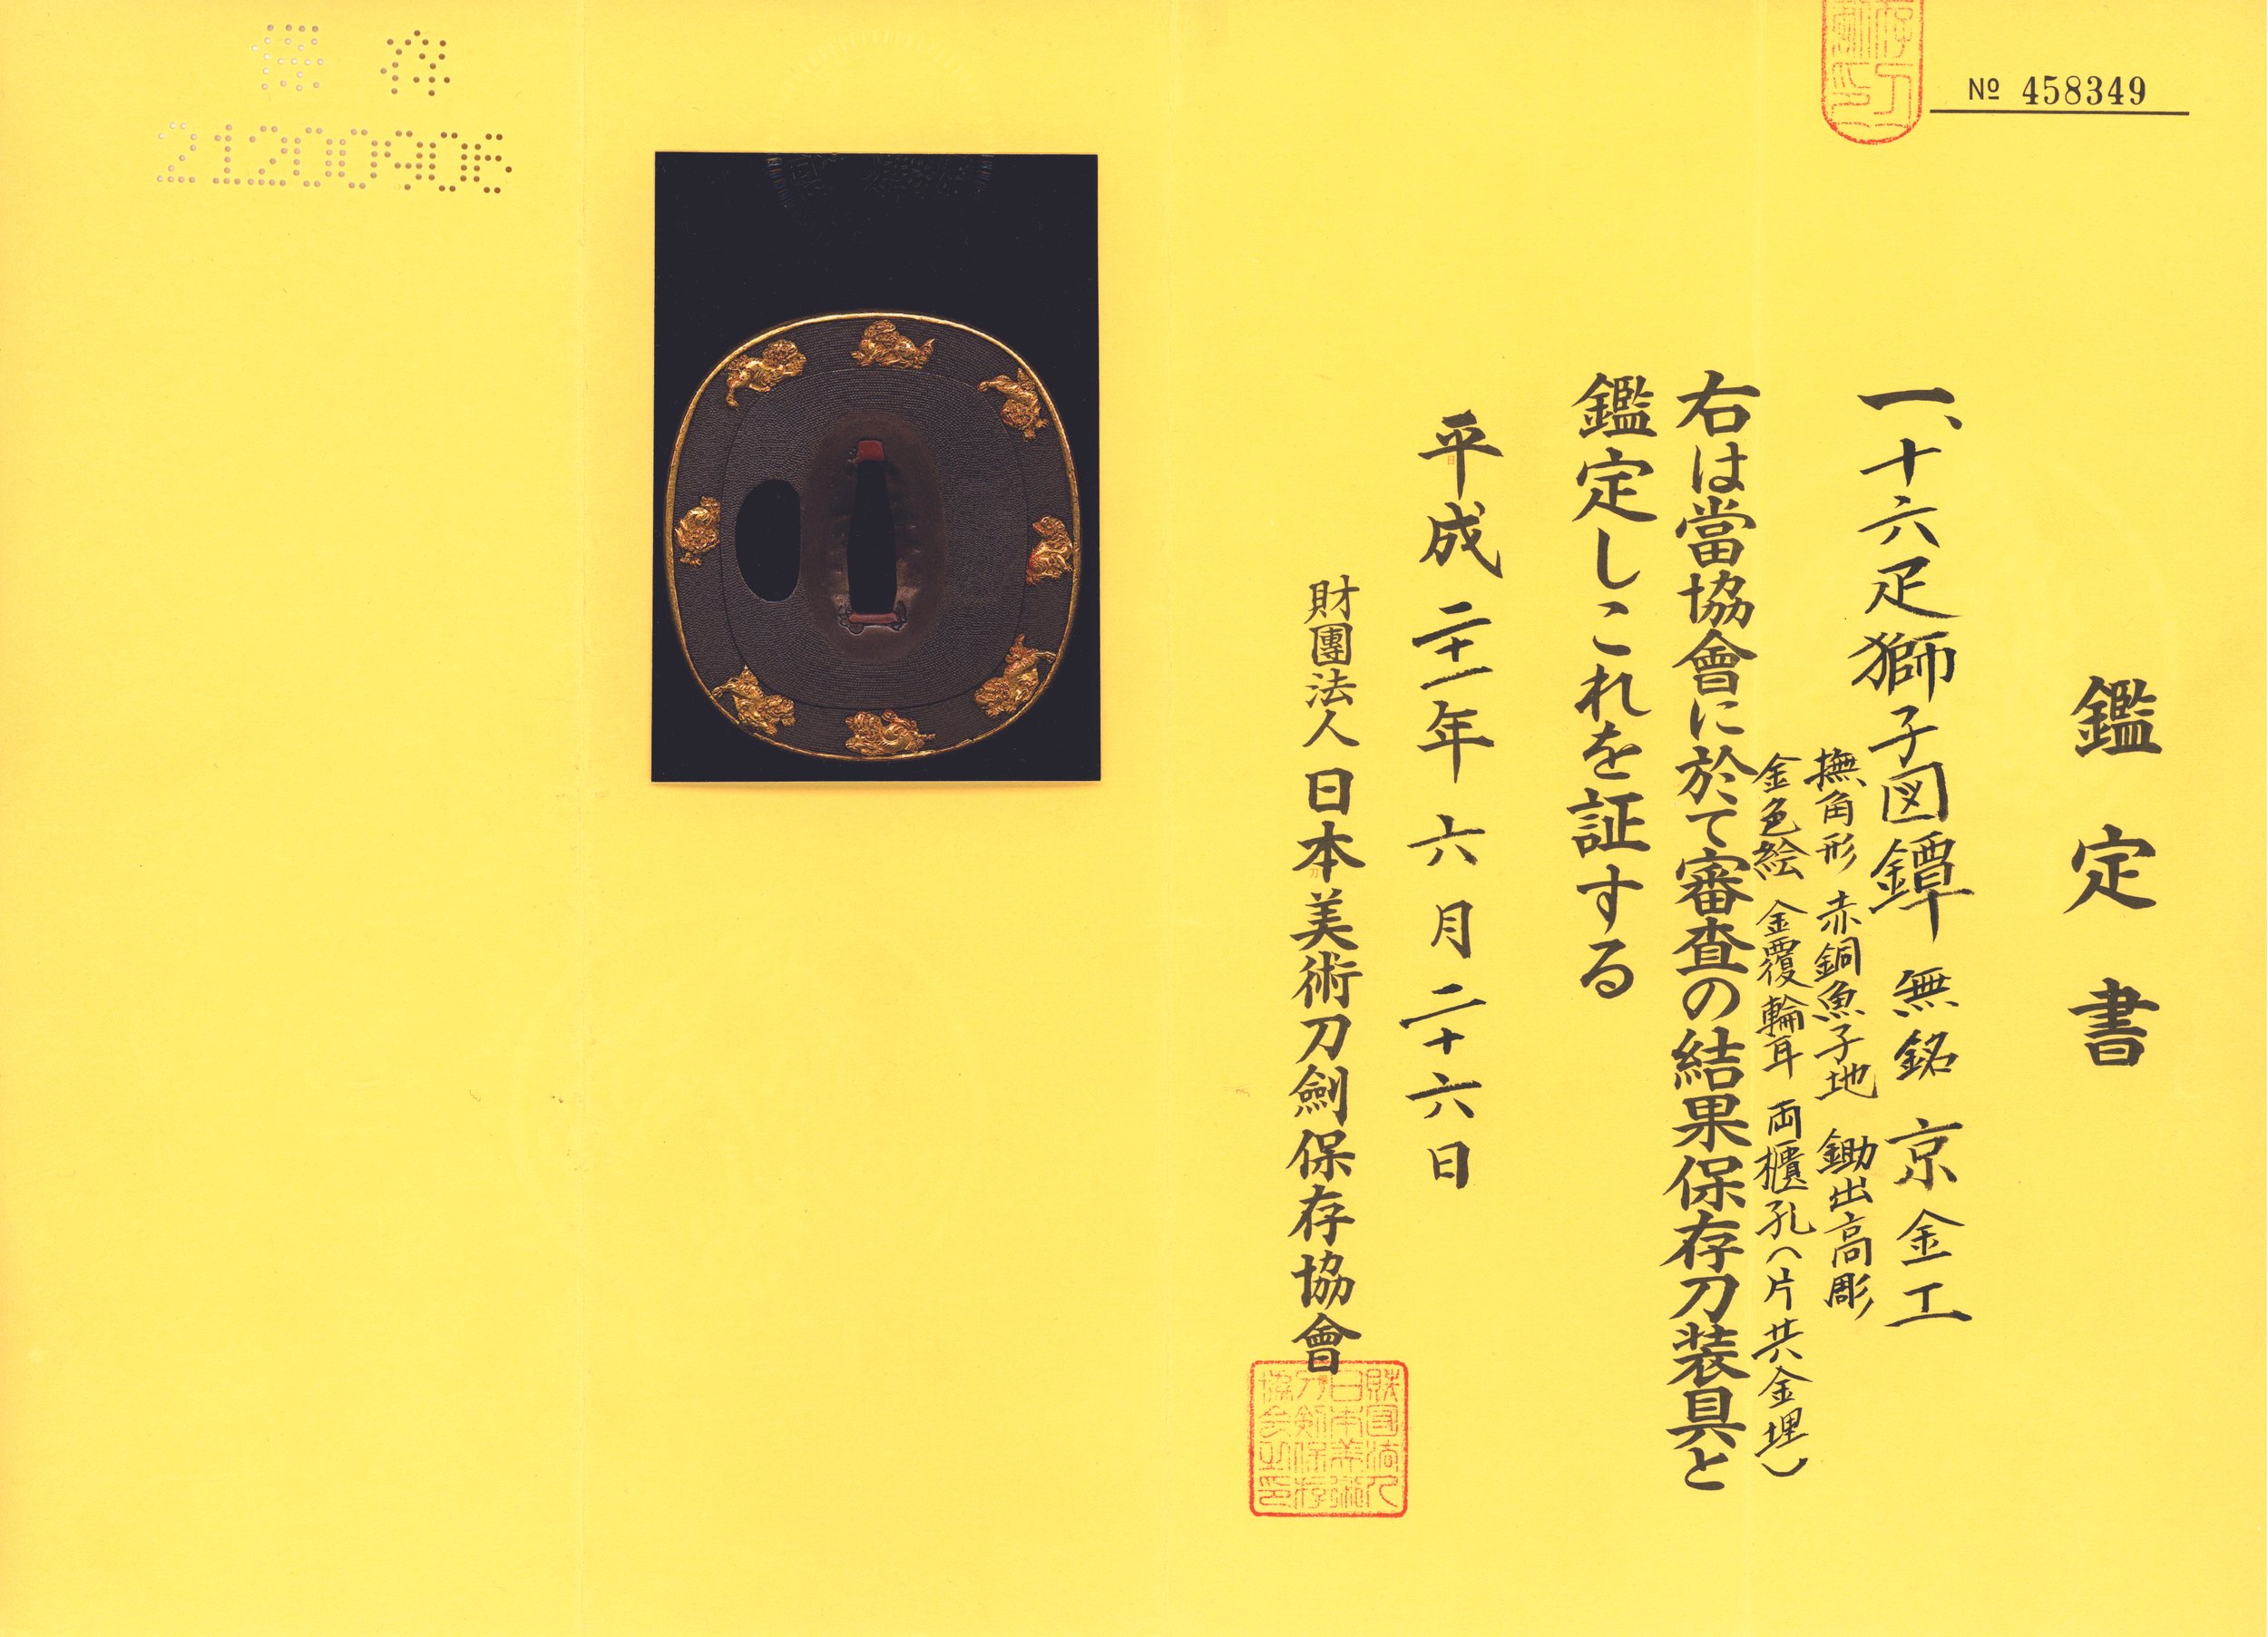 No 458349
鑑定書
一、十六疋獅子図鐔 無銘 京金工
撫角形 赤銅魚子地 鋤出高彫
金色絵 金覆輪耳 両櫃孔（片共金埋）
右は當協會に於て審査の結果保存刀装具と
鑑定しこれを証する
平成二十一年六月二十六日
財團法人 日本美術刀劍保存協會
財団法人
日本美術
刀剣保存
協会之印
保存
21200906